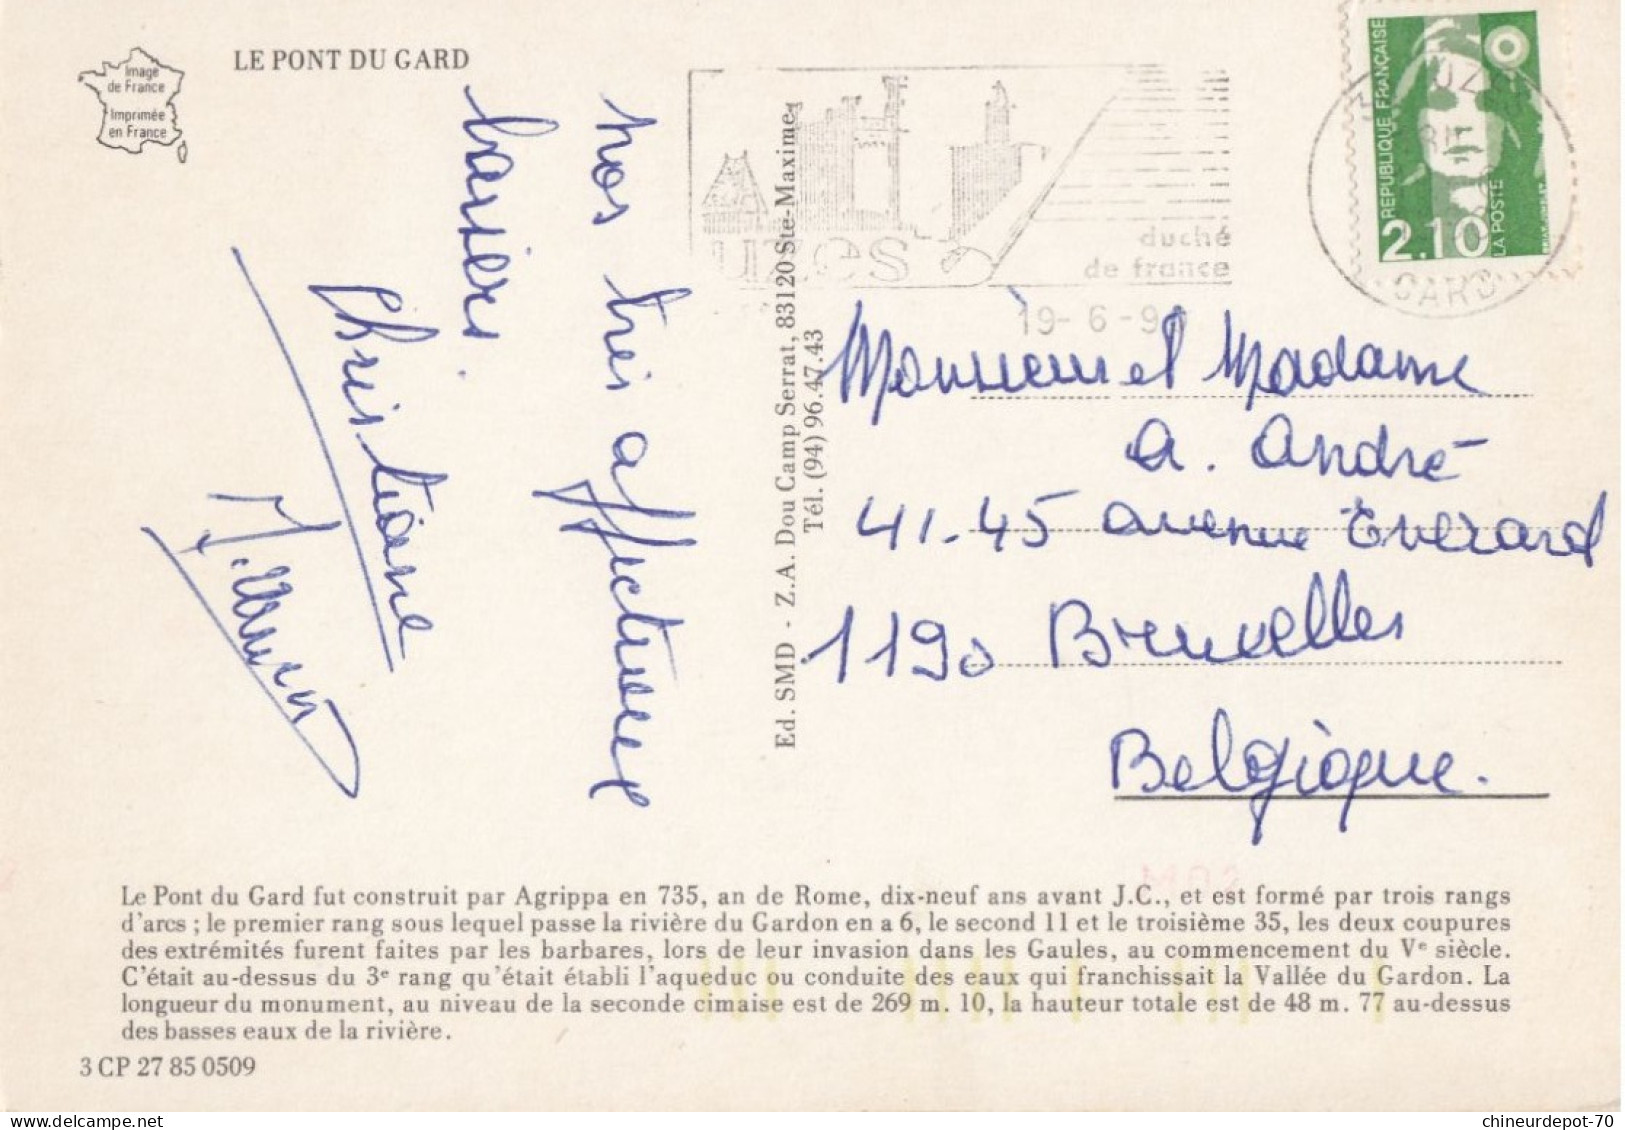 LE PONT DU GARD
Image
de France
Imprimée
en France
nos très affectueux
baisers.
Christiane
Ed. SMD - Z.A. Dou Camp Serrat, 83120 Ste-Maxime
Tél. (94) 96.47.43
uzes
duché
de france
19-6-9
GARD
REPUBLIQUE FRANÇAISE
2.10
LA POSTE
Monsieur et Madame
A. André
41-45 avenue Everard
1190 Bruxelles
Belgique.
Le Pont du Gard fut construit par Agrippa en 735, an de Rome, dix-neuf ans avant J.C., et est formé par trois rangs
d'arcs ; le premier rang sous lequel passe la rivière du Gardon en a 6, le second 11 et le troisième 35, les deux coupures
des extrémités furent faites par les barbares, lors de leur invasion dans les Gaules, au commencement du Ve siècle.
C'était au-dessus du 3e rang qu'était établi l'aqueduc ou conduite des eaux qui franchissait la Vallée du Gardon. La
longueur du monument, au niveau de la seconde cimaise est de 269 m. 10, la hauteur totale est de 48 m. 77 au-dessus
des basses eaux de la rivière.
3 CP 27 85 0509
chineurdepot-70